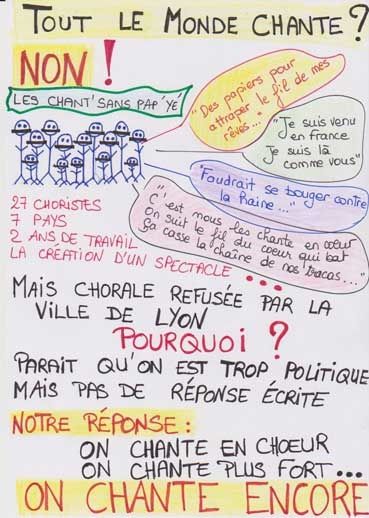 TOUT LE MONDE CHANTE ?
NON !
LES CHANT'SANS PAP'YÉ
"Des papiers pour
attraper le fil de mes
rêves..."
"Je suis venu
en france
Je suis là
comme vous"
"Faudrait se bouger contre
la Haine..."
"C'est nous les chante en cœur
On suit le fil du coeur qui bat
Ça casse la chaîne de nos tracas..."
27 CHORISTES
7 PAYS
2 ANS DE TRAVAIL
LA CRÉATION D'UN SPECTACLE ...
MAIS CHORALE REFUSÉE PAR LA
VILLE DE LYON
POURQUOI ?
PARAIT QU'ON EST TROP POLITIQUE
MAIS PAS DE RÉPONSE ÉCRITE
NOTRE RÉPONSE :
ON CHANTE EN CHOEUR
ON CHANTE PLUS FORT...
ON CHANTE ENCORE